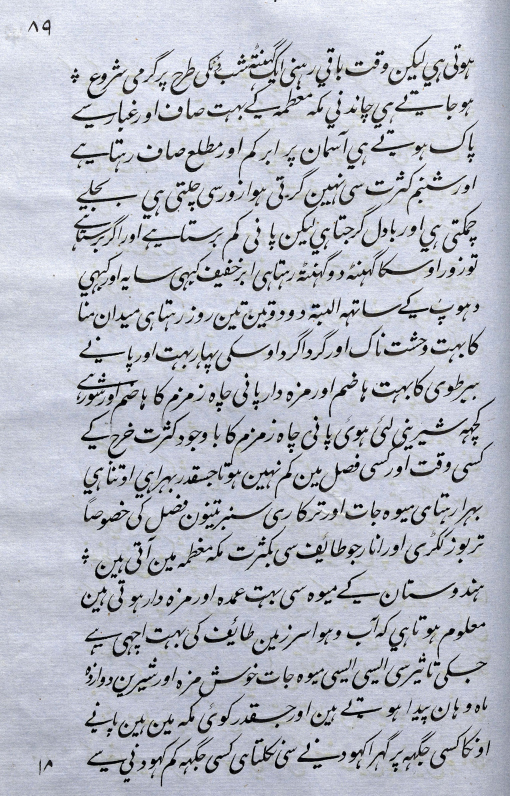 ۸۹
ہوتی ہي لیکن وقت باقي رہنی ایک گہنٹہ شب کی طرح پر گرمی شروع
ہو جاتے ہي چاندنی مکہ معظمہ کے بہت صاف اور غبار سے
پاک ہوتے ہي آسمان پر ابر کم اور مطلع صاف رہتا ہے
اور شبنم کثرت سی نہین گرتی ہوا زور سی چلتی ہي بجلے
چمکتی ہي اور بادل گرجتا ہي لیکن پانی کم برستا ہے اور اگر برستا ہے
تو زور اوسکا گہنٹہ دو گہنٹہ رہتا ہی ابر خفیف کبہی سایہ اور کبہی
دہوپ کے ساتہہ البتہ دو دو تین تین روز رہتا ہی میدان منا
کا بہت وحشت ناک اور گرداگرد اوسکی پہار بہت اور پانے
بیرطوی کا بہت ہاضم اور مزہ دار پانی چاہ زمزم کا ہاضم اور شور ہے
کچہہ شیرینی لئی ہوئی پانی چاہ زمزم کا باوجود کثرت خرچ کے
کسی وقت اور کسی فصل مین کم نہین ہوتا جسقدر بہرا ہي اوتنا ہي
بہرا رہتا ہی میوہ جات اور ترکاری سبز تینون فصل کی خصوصاً
تربوز ککڑی اور انار جو طائف سی بکثرت مکہ معظمہ مین آتی ہین
ہندوستان کے میوہ سی بہت عمدہ اور مزہ دار ہوتی ہین
معلوم ہوتا ہي کہ آب و ہوا سرزمین طائف کی بہت اچہی ہے
جسکی تاثیر سی ایسی ایسی میوہ جات خوش مزہ اور شیرین دوازدہ
ماہ وہان پیدا ہوتے ہین اور جسقدر کوئی مکہ مین ہین پانے
اونکا کسی جگہہ پر گہرا کہودنے سی نکلتا ہی کسی جگہہ کم کہودنی سے